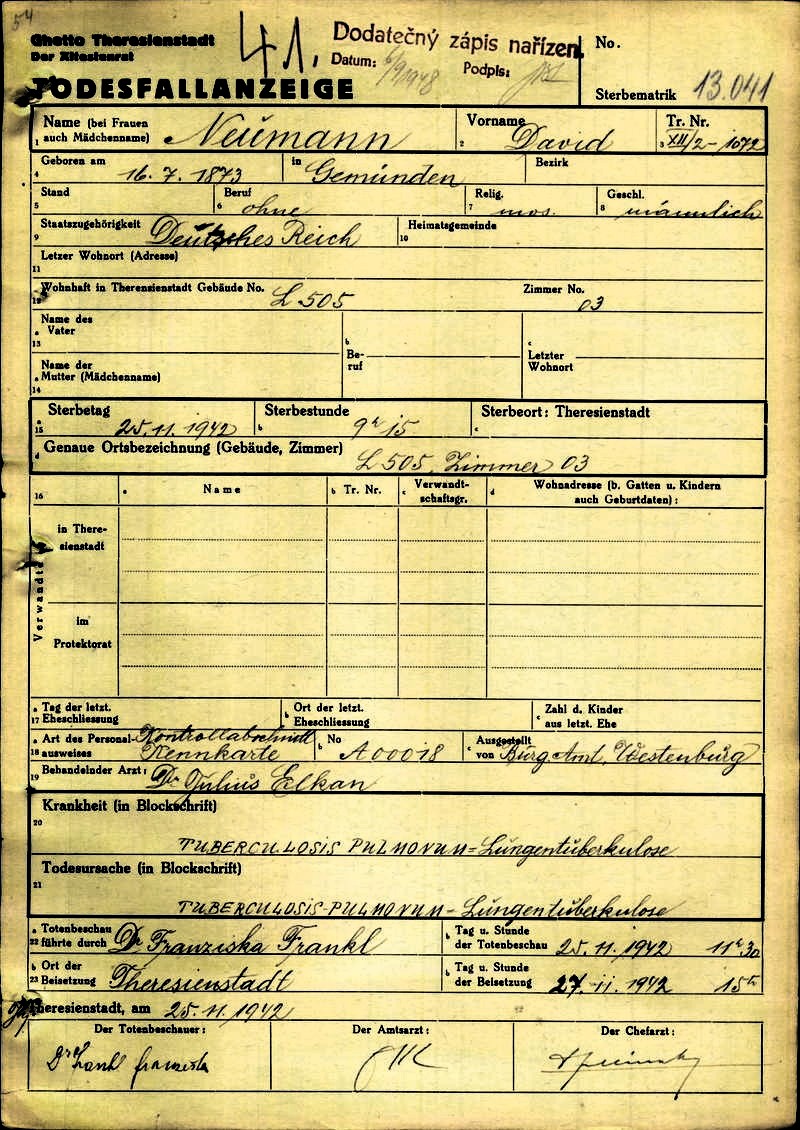 54
Ghetto Theresienstadt
Der Ältestenrat
41.
Dodatečný zápis nařízen.
Datum: 6/9 1948 Podpis:
No.
TODESFALLANZEIGE
Sterbematrik 13.041
1 Name (bei Frauen auch Mädchenname) Neumann
2 Vorname David
3 Tr. Nr. XII/2-1072
4 Geboren am 16. 7. 1873 in Gemünden Bezirk
5 Stand
6 Beruf ohne
7 Relig. mos.
8 Geschl. männlich
9 Staatszugehörigkeit Deutsches Reich
10 Heimatsgemeinde
11 Letzer Wohnort (Adresse)
12 Wohnhaft in Theresienstadt Gebäude No. L 505 Zimmer No. 03
13 a Name des Vater
b Beruf
c Letzter Wohnort
14 a Name der Mutter (Mädchenname)
15 a Sterbetag 25. 11. 1942
b Sterbestunde 9h 15
c Sterbeort: Theresienstadt
d Genaue Ortsbezeichnung (Gebäude, Zimmer) L 505, Zimmer 03
16 a Name b Tr. Nr. c Verwandt-schaftsgr. d Wohnadresse (b. Gatten u. Kindern auch Geburtdaten):
Verwandte
in There-sienstadt
im Protektorat
17 a Tag der letzt. Eheschliessung
b Ort der letzt. Eheschliessung
c Zahl d. Kinder aus letzt. Ehe
18 a Art des Personal-ausweises Kontrollabschnitt Kennkarte
b No A 00018
c Ausgestellt von Bürg. Amt, Westenburg
19 Behandelnder Arzt: Dr. Julius Elkan
20 Krankheit (in Blockschrift)
TUBERCULOSIS PULMONUM = Lungentuberkulose
21 Todesursache (in Blockschrift)
TUBERCULOSIS-PULMONUM - Lungentuberkulose
22 a Totenbeschau führte durch Dr Franziska Frankl
b Tag u. Stunde der Totenbeschau 25. 11. 1942 11h 30
23 b Ort der Beisetzung Theresienstadt
b Tag u. Stunde der Beisetzung 27. 11. 1942 15h
Theresienstadt, am 25. 11. 1942
Der Totenbeschauer: Der Amtsarzt: Der Chefarzt: